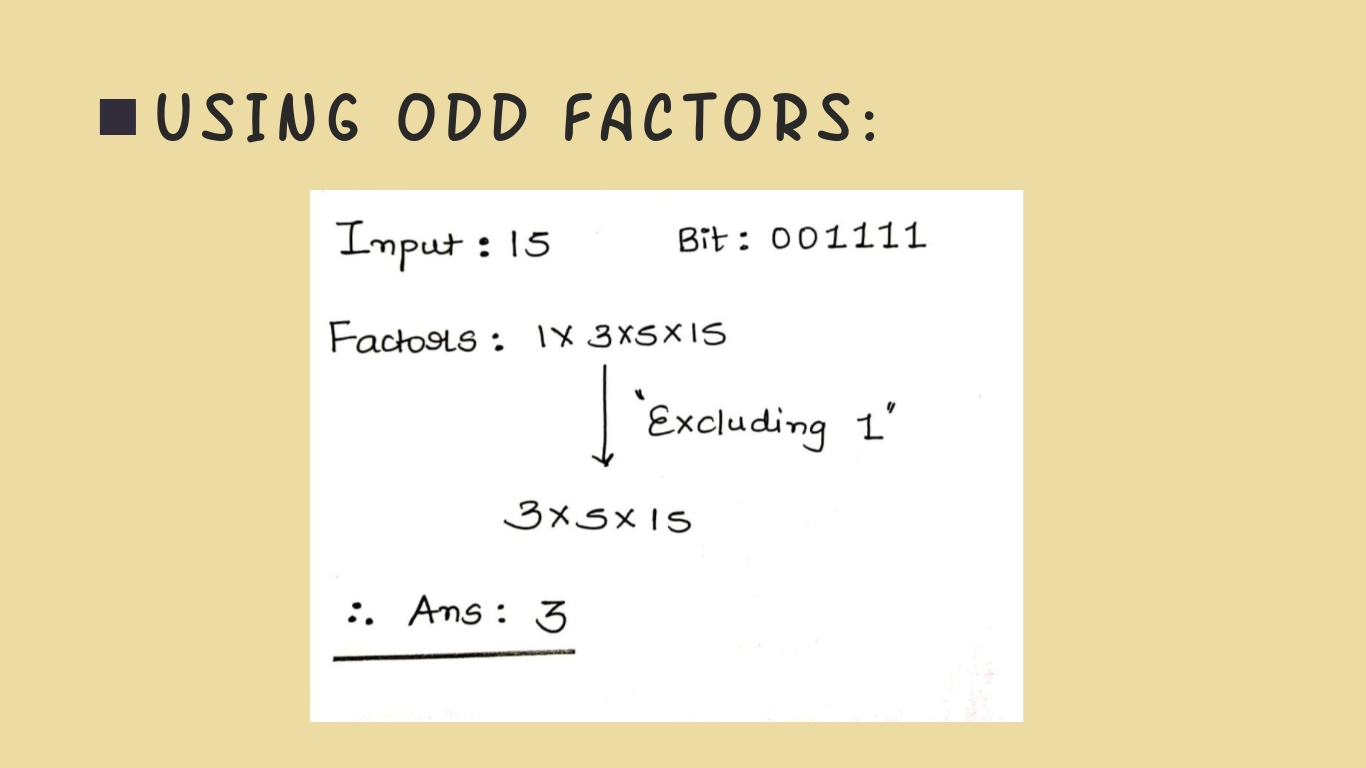 USING ODD FACTORS:
Input : 15 Bit : 001111
Factors : 1 × 3 × 5 × 15
"Excluding 1"
3 × 5 × 15
∴ Ans : 3